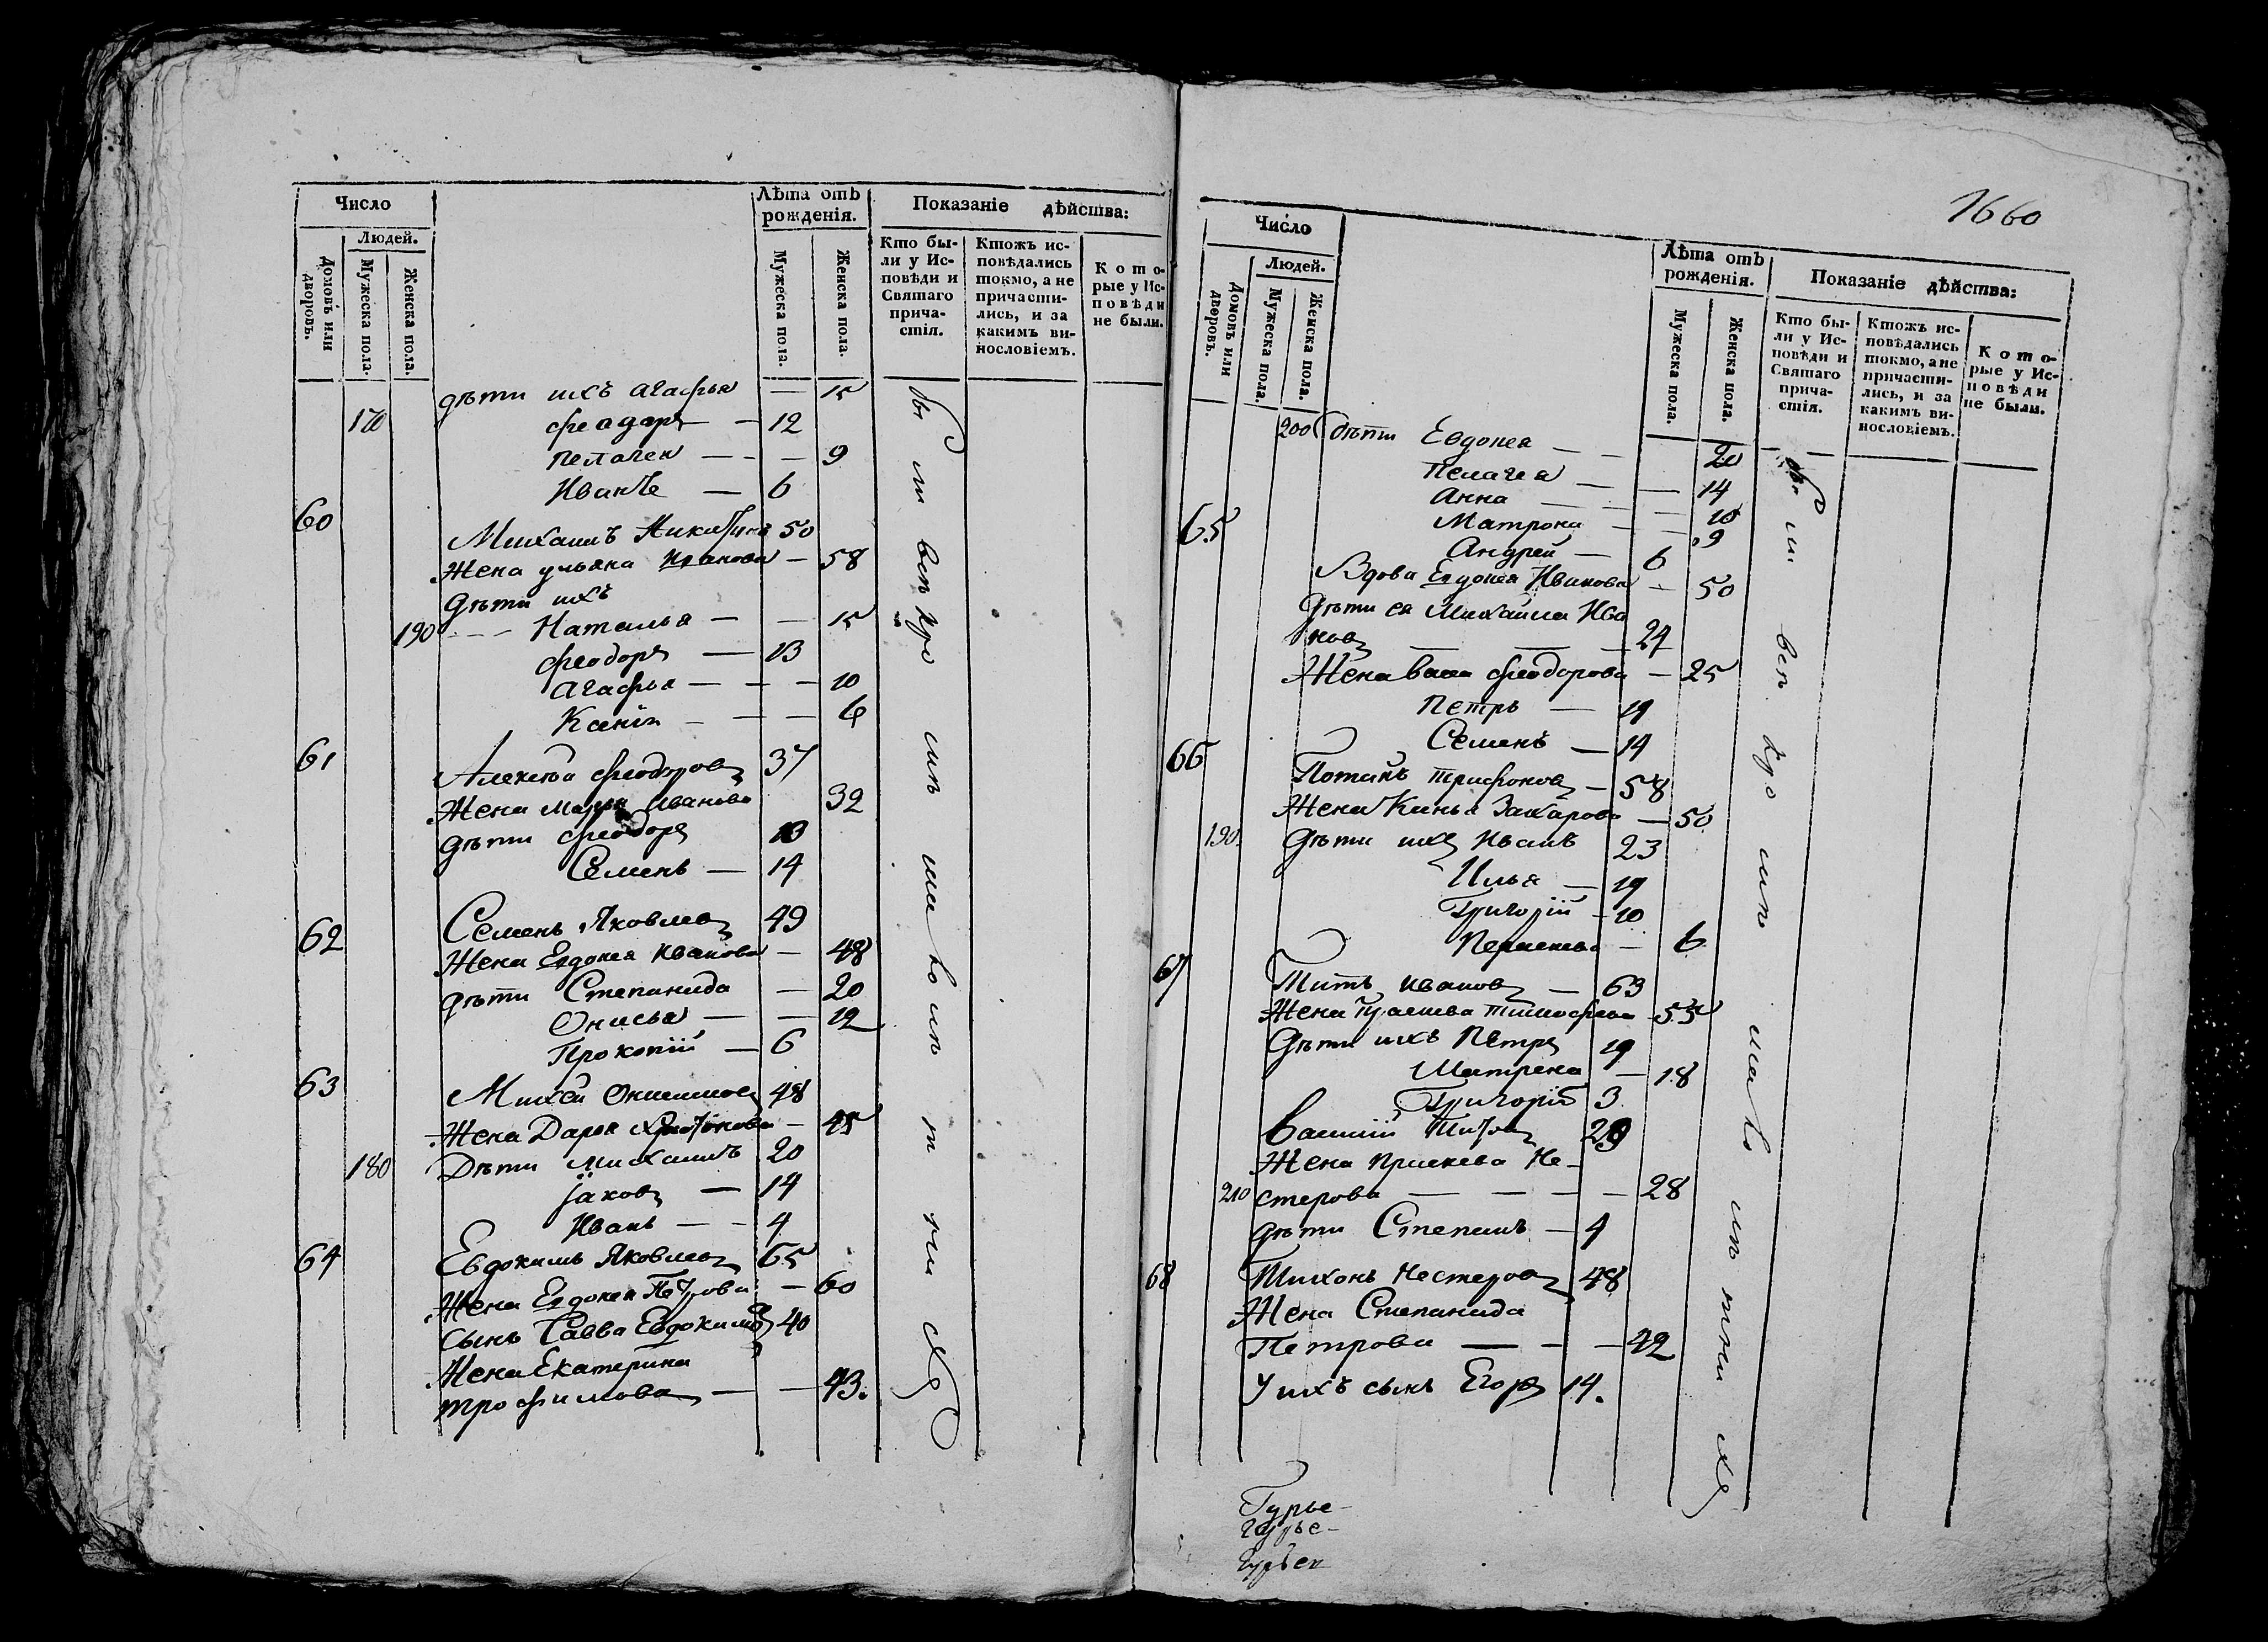 Число
Людей.
Домовъ или дворовъ.
Мужеска пола.
Женска пола.
Лѣта отъ рожденія.
Мужеска пола.
Женска пола.
Показаніе дѣйства:
Кто были у Исповѣди и Святаго причастія.
Ктожъ исповѣдались токмо, а не причастились, и за какимъ винословіемъ.
Которые у Исповѣди не были.
дѣти ихъ Агафья — 15
170 Феодоръ — 12
Пелагея — 9
Иванъ — 6
60 Михаилъ Никитинъ 50
Жена Ульяна Иванова — 58
Дѣти ихъ
190 Наталья — 15
Феодоръ — 13
Агафья — 10
6
61 Алексѣй Феодоровъ 37
Жена Марья Иванова 32
дѣти Феодоръ
Семенъ — 14
62 Семенъ Яковлевъ 49
Жена Евдокея Иванова — 48
дѣти Степанида — 20
Онисья — 12
Прокопій — 6
63 Михей 48
Жена Дарья — 45
180 Дѣти Михаилъ 20
Іаковъ — 14
Иванъ — 4
64 Евдокимъ Яковлевъ 65
Жена Евдокея Петрова — 60
Сынъ Савва Евдокимовъ 40
Жена Екатерина
Трофимова — 43.
1660
Число
Людей.
Домовъ или дворовъ.
Мужеска пола.
Женска пола.
Лѣта отъ рожденія.
Мужеска пола.
Женска пола.
Показаніе дѣйства:
Кто были у Исповѣди и Святаго причастія.
Ктожъ исповѣдались токмо, а не причастились, и за какимъ винословіемъ.
Которые у Исповѣди не были.
200 дѣти Евдокея — 20
Пелагея — 14
Анна — 10
65 Матрона — 9
Андрей — 6
Вдова Евдокея Иванова — 50
Дѣти ея Михайла Ива
новъ — 24
Жена Феодорова — 25
Петръ — 19
Семенъ — 14
66 Потапъ Трифоновъ — 58
Жена Захарова — 50
190. Дѣти ихъ Иванъ 23
Илья — 19
Григорій — 10
6
67 Титъ Ивановъ — 63
Жена Тимофеева 55
Дѣти ихъ Петръ 19
Матрена — 18
Григорій 3
Василій Титовъ 29
Жена Праскева Не-
210 стерова — 28
дѣти Степанъ — 4
68 Тихонъ Нестеровъ 48
Жена Степанида
Петрова — 42
У ихъ сынъ Егоръ 14.
Гурье-
Гурье-